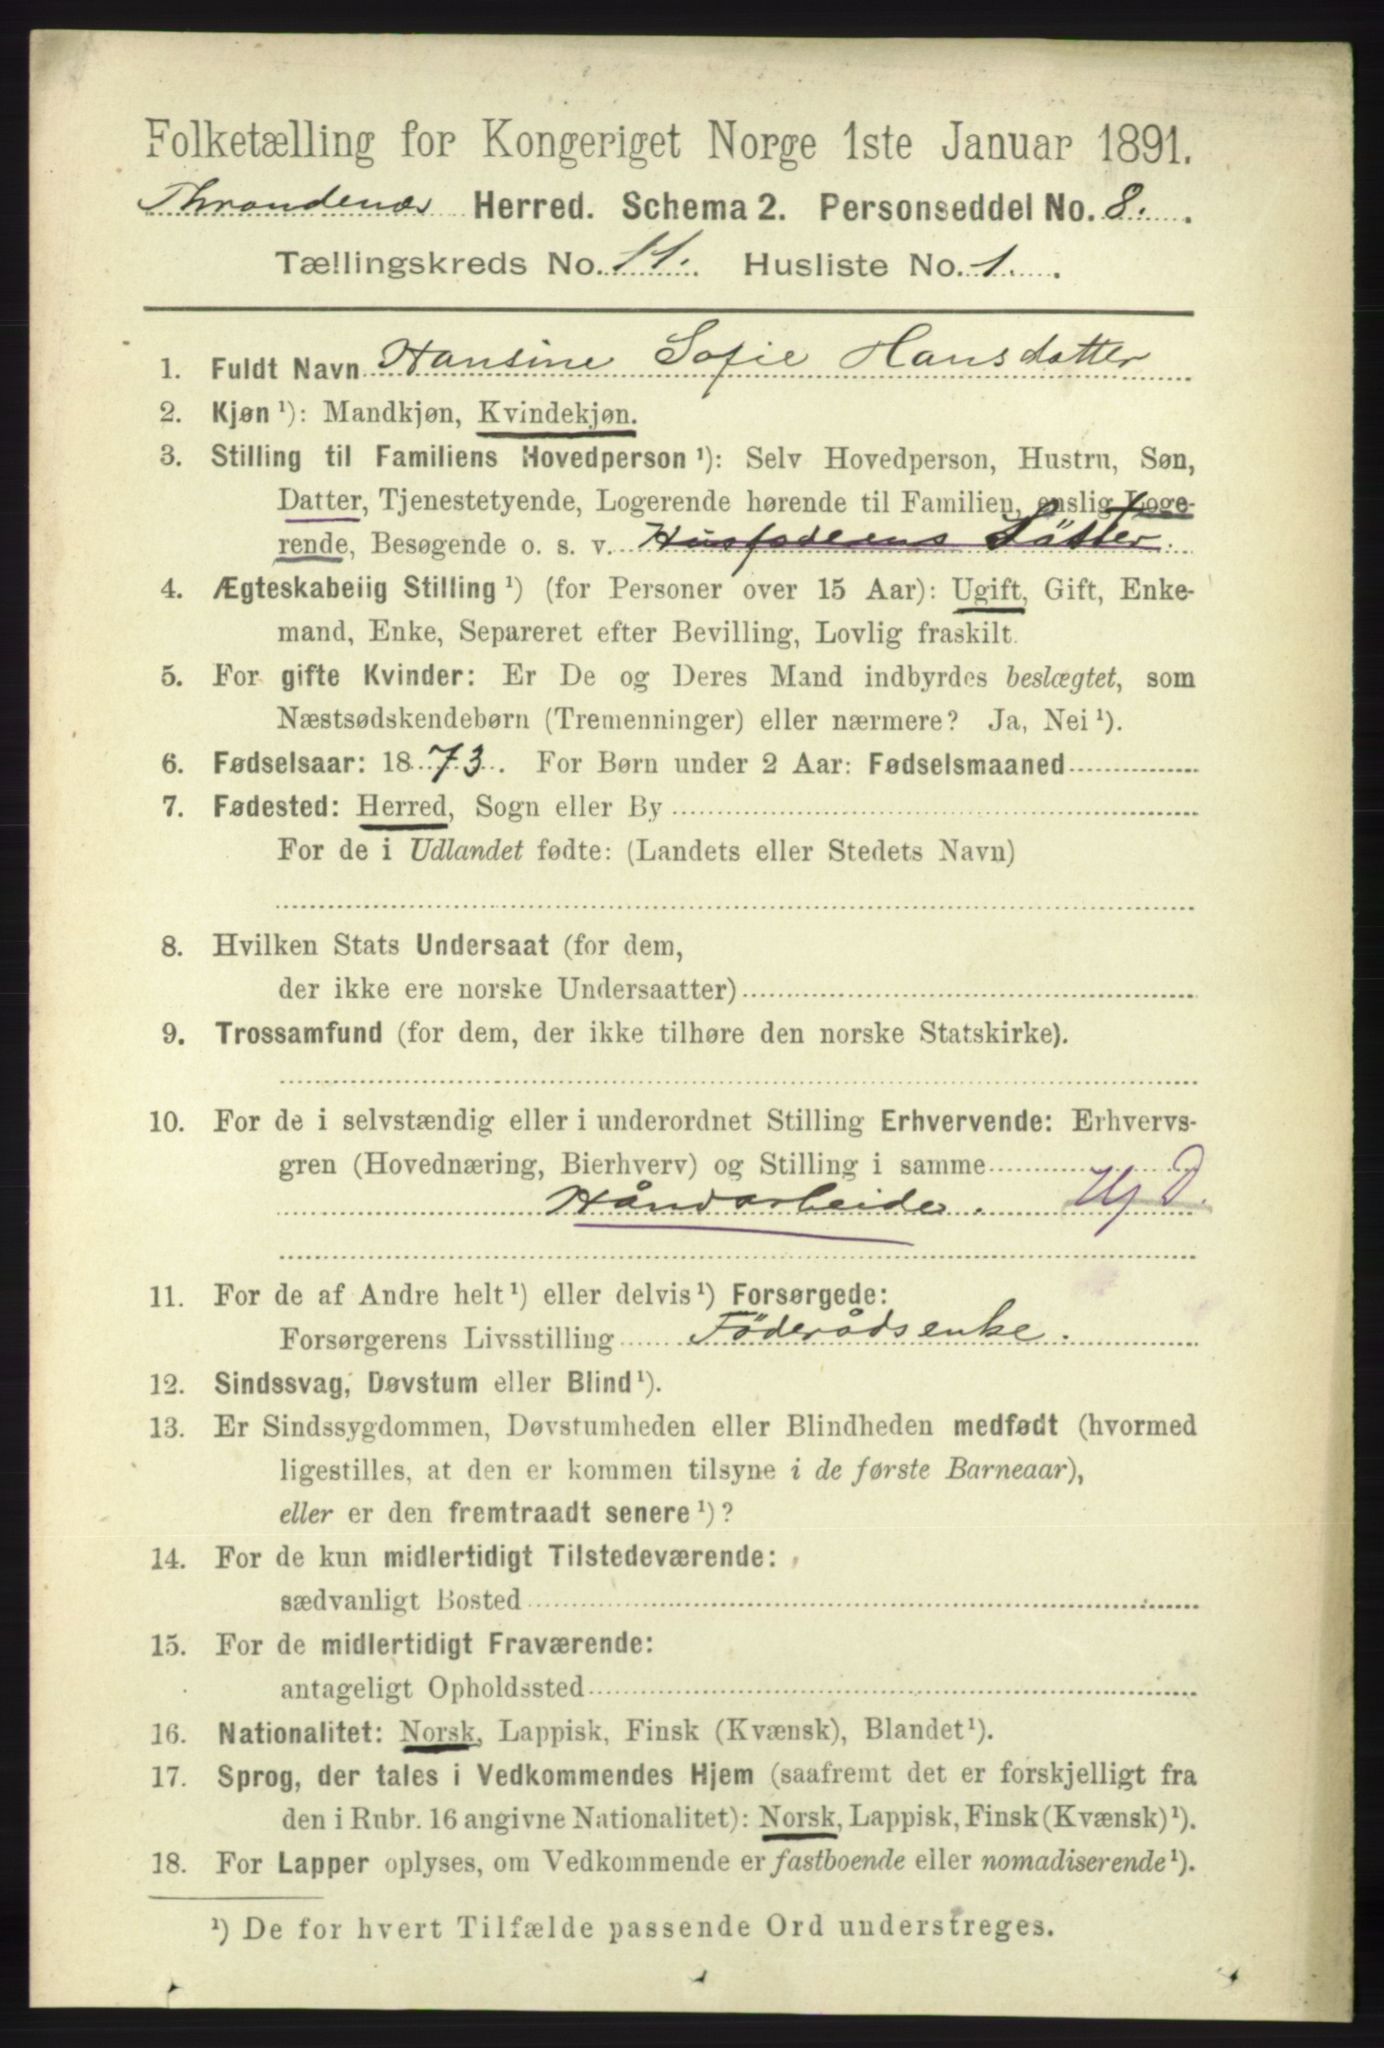 Folketælling for Kongeriget Norge 1ste Januar 1891.
Throndenæs Herred. Schema 2. Personseddel No. 8.
Tællingskreds No. 11. Husliste No. 1.
1. Fuldt Navn Hansine Sofie Hansdatter
2. Kjøn ¹): Mandkjøn, Kvindekjøn.
3. Stilling til Familiens Hovedperson ¹): Selv Hovedperson, Hustru, Søn,
Datter, Tjenestetyende, Logerende hørende til Familien, enslig Loge-
rende, Besøgende o. s. v. Husfaderens Söster.
4. Ægteskabelig Stilling ¹) (for Personer over 15 Aar): Ugift, Gift, Enke-
mand, Enke, Separeret efter Bevilling, Lovlig fraskilt.
5. For gifte Kvinder: Er De og Deres Mand indbyrdes beslægtet, som
Næstsødskendebørn (Tremenninger) eller nærmere? Ja, Nei ¹).
6. Fødselsaar: 1873. For Børn under 2 Aar: Fødselsmaaned
7. Fødested: Herred, Sogn eller By
For de i Udlandet fødte: (Landets eller Stedets Navn)
8. Hvilken Stats Undersaat (for dem,
der ikke ere norske Undersaatter)
9. Trossamfund (for dem, der ikke tilhøre den norske Statskirke).
10. For de i selvstændig eller i underordnet Stilling Erhvervende: Erhvervs-
gren (Hovednæring, Bierhverv) og Stilling i samme
Håndarbeide. Hj D.
11. For de af Andre helt ¹) eller delvis ¹) Forsørgede:
Forsørgerens Livsstilling Föderådsenke.
12. Sindssvag, Døvstum eller Blind ¹).
13. Er Sindssygdommen, Døvstumheden eller Blindheden medfødt (hvormed
ligestilles, at den er kommen tilsyne i de første Barneaar),
eller er den fremtraadt senere ¹)?
14. For de kun midlertidigt Tilstedeværende:
sædvanligt Bosted
15. For de midlertidigt Fraværende:
antageligt Opholdssted
16. Nationalitet: Norsk, Lappisk, Finsk (Kvænsk), Blandet ¹).
17. Sprog, der tales i Vedkommendes Hjem (saafremt det er forskjelligt fra
den i Rubr. 16 angivne Nationalitet): Norsk, Lappisk, Finsk (Kvænsk) ¹).
18. For Lapper oplyses, om Vedkommende er fastboende eller nomadiserende ¹).
¹) De for hvert Tilfælde passende Ord understreges.